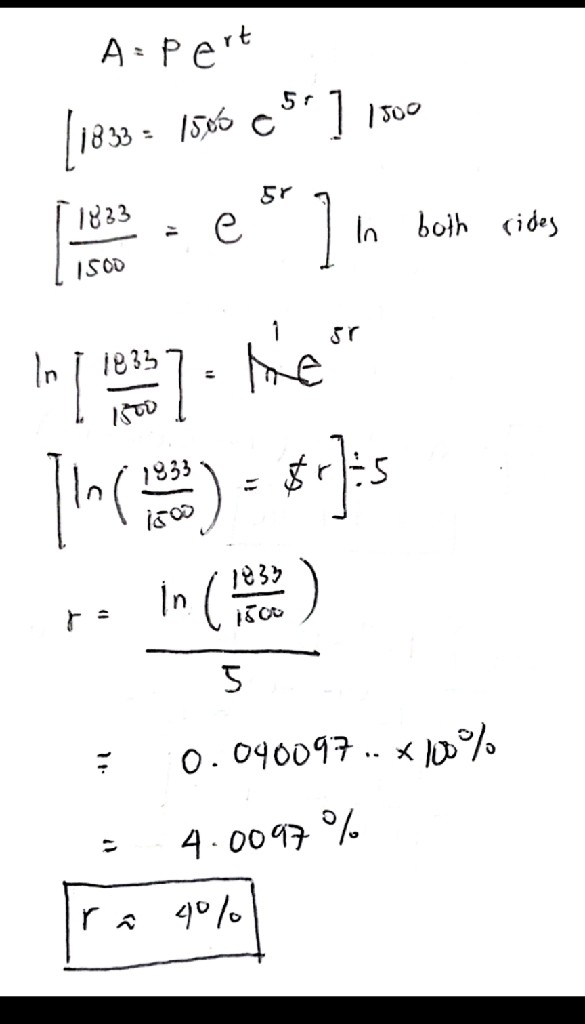 A = P e^rt
[1833 = 1500 e^5r] 1500
[1833/1500 = e^5r] ln both sides
ln [1833/1500] = ln e^5r 1
[ln (1833/1500) = 5r] ÷ 5
r = ln (1833/1500) / 5
= 0.040097.. × 100%
= 4.0097 %
r ≈ 4%